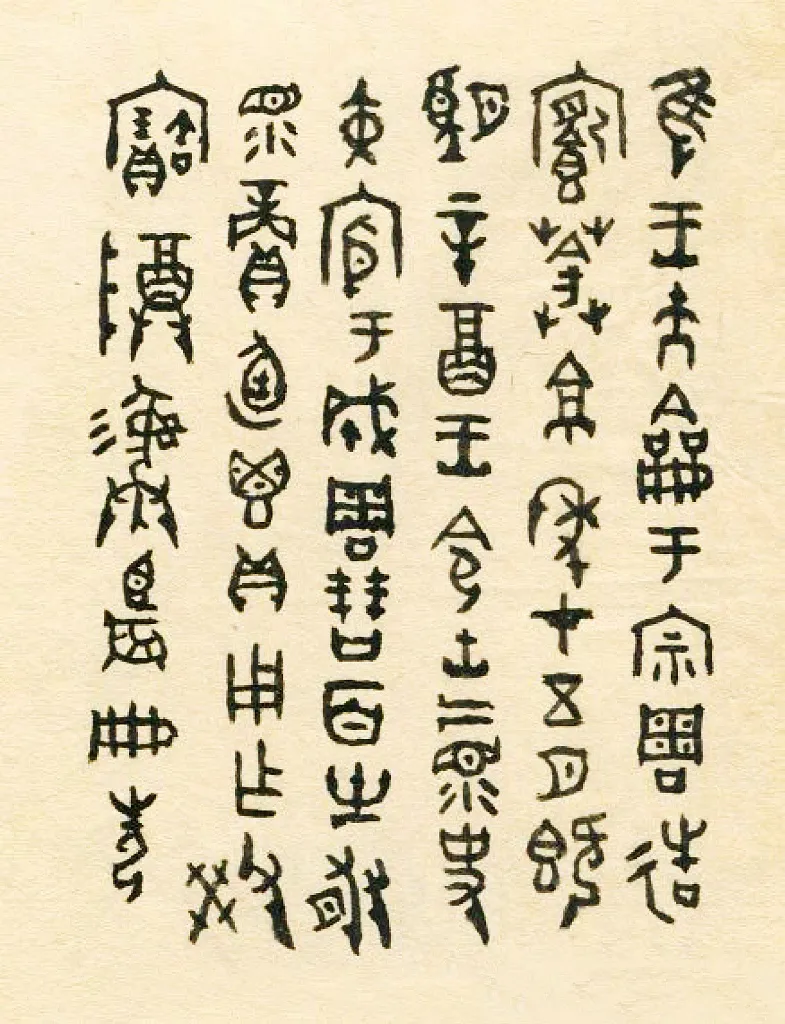 隹王大龠于宗周𢓊
葊京年才五月既
望辛酉王令士上眔史
寅殷于成周百生豚
眔賞卣鬯貝用乍父癸
寶尊彝臣辰冊先